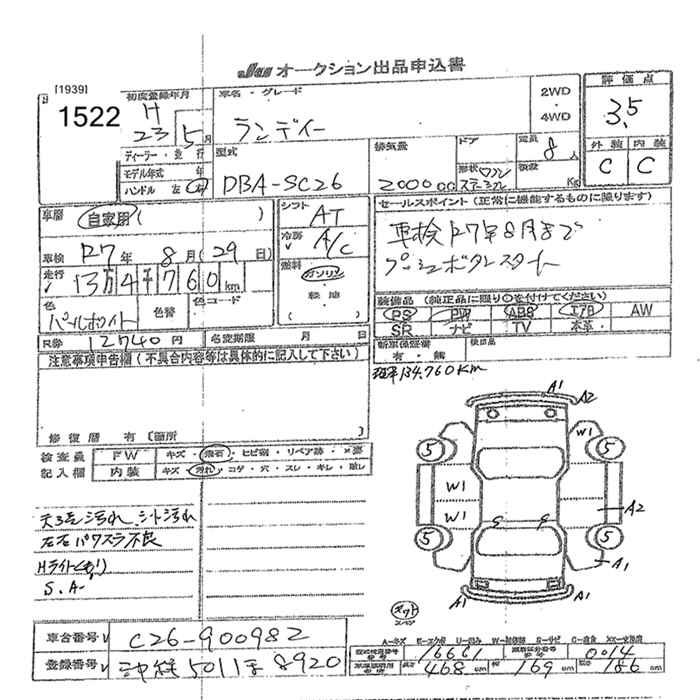 JAA オークション出品申込書
[1939]
1522
初度登録年月
H
23 5月
車名・グレード
ランディー
2WD
・
4WD
評価点
3.5
ディーラー・並行
モデル年式 年
ハンドル 左・右
型式
DBA-SC26
排気量
2000cc
ドア
形状 ワゴン
定員
8人
積載
Kg
外装 内装
C C
車歴 自家用 ( )
シフト AT
セールスポイント (正常に機能するものに限ります)
車検 R7年 8月(29日)
冷房 A/C
車検R7年8月まで
走行 13万4千760km
燃料 ガソリン
軽油
プッシュボタンスタート
色 パールホワイト
色替
色コード
装備品 (純正品に限り○を付けてください)
PS PW ABS エアB AW
SR ナビ TV 本革
R券 12740円
名変期限 月 日
新車保証書
有・無
後日品
注意事項申告欄 (不具合内容等は具体的に記入して下さい)
134,760Km
修復歴 有 [箇所 ]
検査員
記入欄
FW キズ・飛石・ヒビ割・リペア跡・×要
内装 キズ・汚れ・コゲ・穴・スレ・キレ・破レ
天張汚れ、シート汚れ
左右パワスラ不良
Hライトくもり
S.A-
A1 A2
W1
5 5
W1
W1 A2
5 5
A1
A1 A1
A-キズ E-エクボ U-凹み W-補修跡 S-サビ C-腐食 XX-交換済
車台番号 C26-900982
登録番号 沖縄 501 8920
16661
0014
長さ 468cm 幅 169cm 高さ 186cm